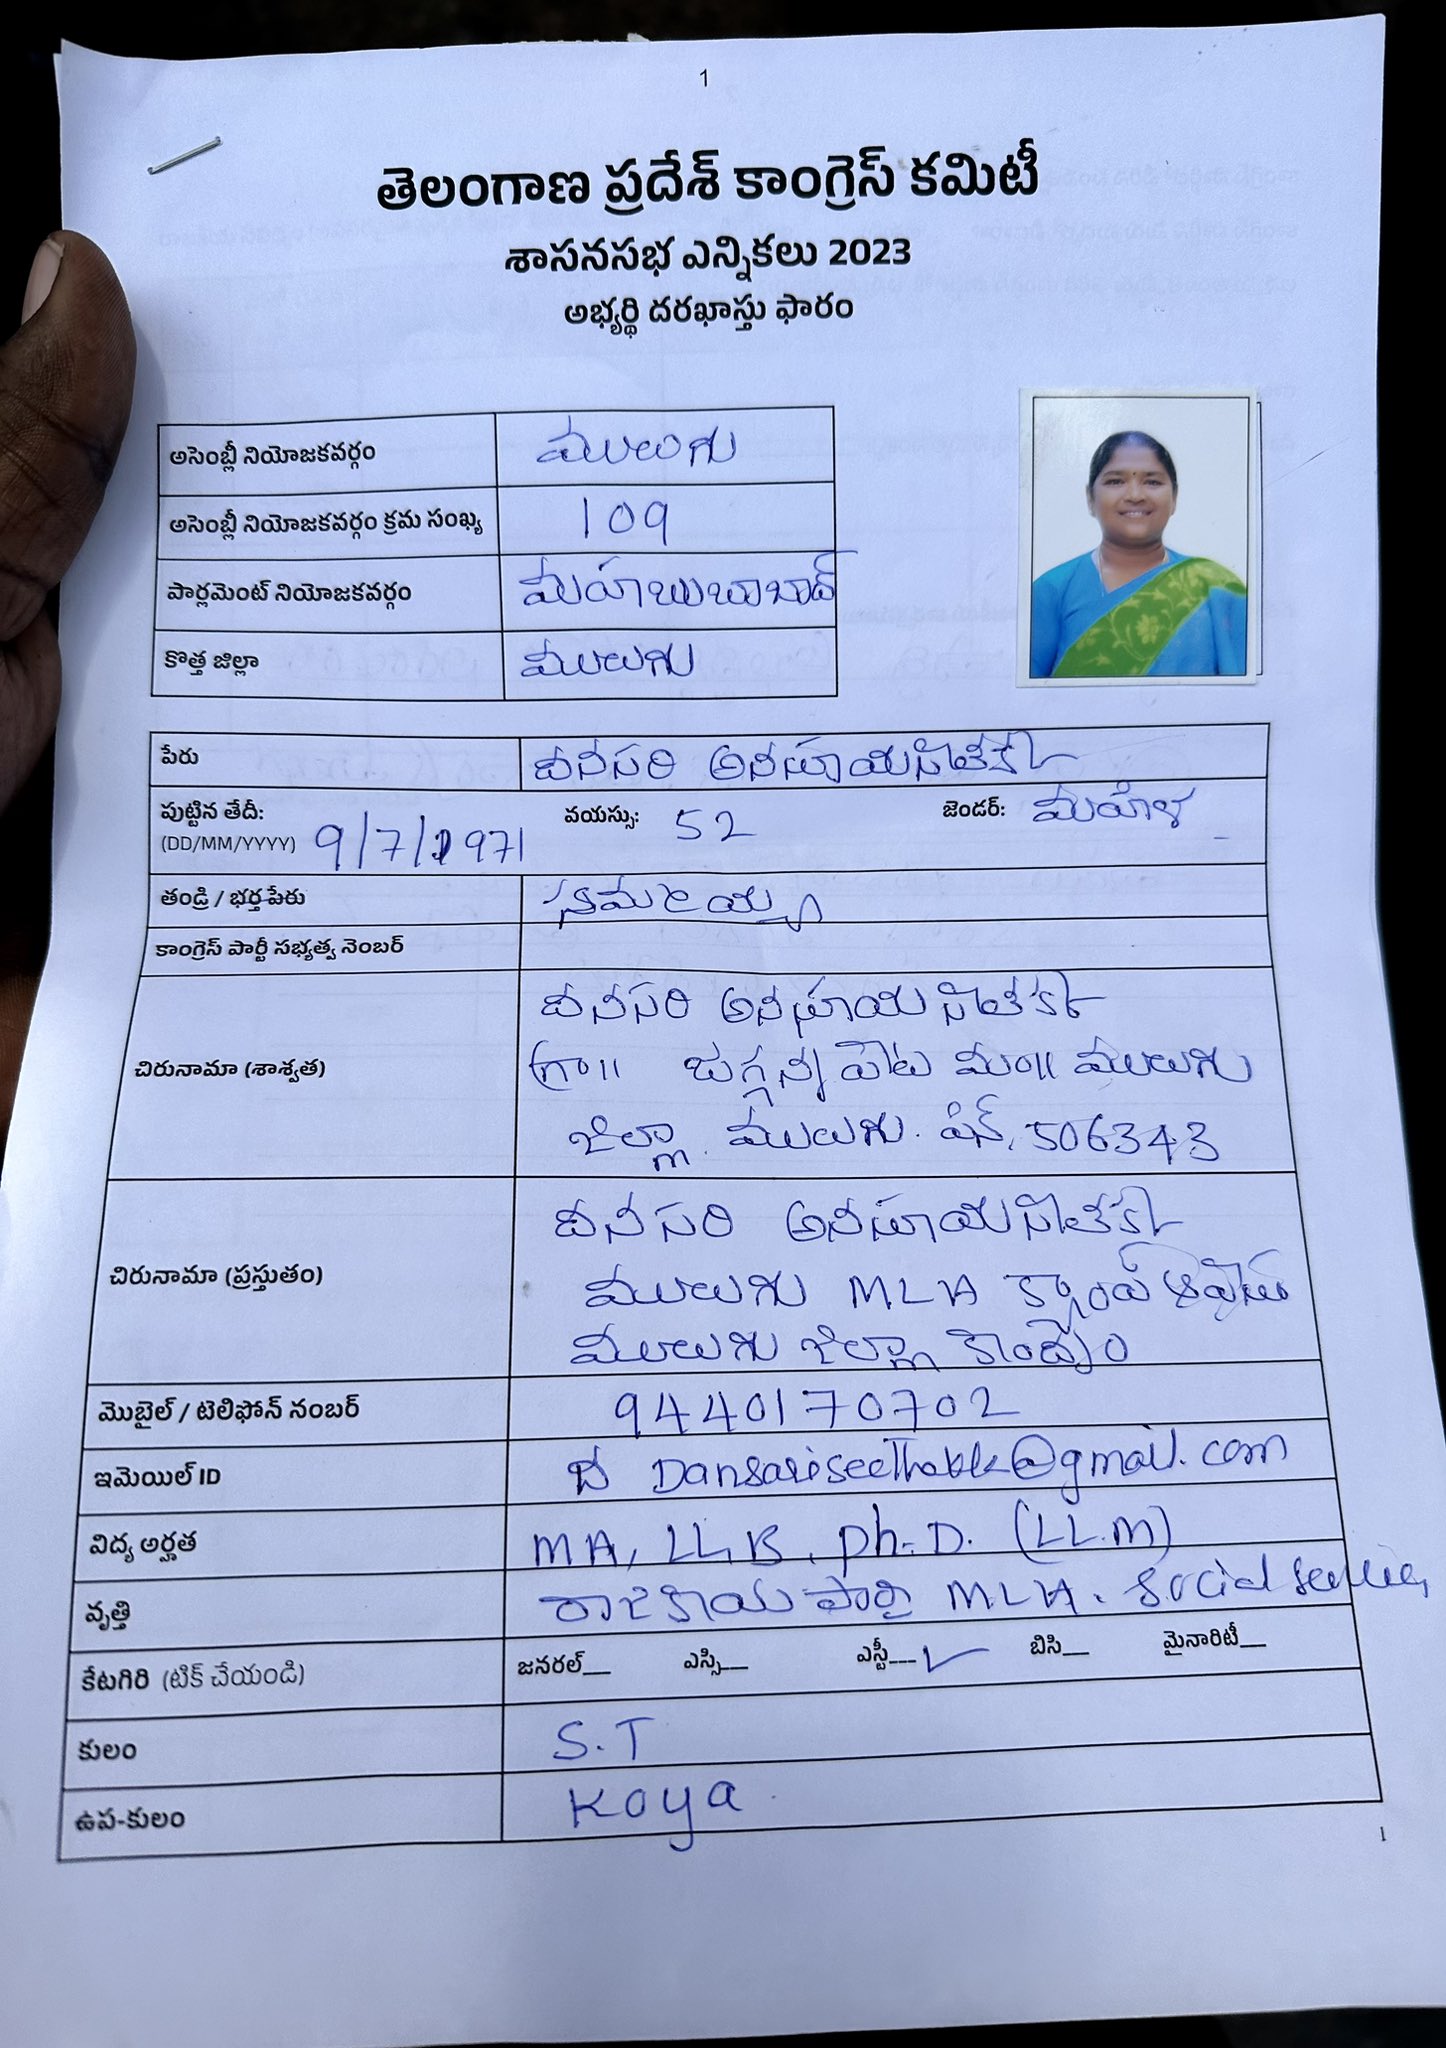 1
తెలంగాణ ప్రదేశ్ కాంగ్రెస్ కమిటీ
శాసనసభ ఎన్నికలు 2023
అభ్యర్థి దరఖాస్తు ఫారం
అసెంబ్లీ నియోజకవర్గం ములుగు
అసెంబ్లీ నియోజకవర్గం క్రమ సంఖ్య 109
పార్లమెంట్ నియోజకవర్గం మహబుబాబాద్
కొత్త జిల్లా ములుగు
పేరు దనసరి అనసూయ సీతక్క
పుట్టిన తేదీ: వయస్సు: 52 జెండర్: మహిళ
(DD/MM/YYYY) 9/7/1971
తండ్రి / భర్త పేరు సమ్మయ్య
కాంగ్రెస్ పార్టీ సభ్యత్వ నెంబర్
దనసరి అనసూయ సీతక్క
చిరునామా (శాశ్వత) గ్రా॥ జగ్గన్నపేట మం॥ ములుగు
జిల్లా ములుగు. పిన్. 506343
దనసరి అనసూయ సీతక్క
చిరునామా (ప్రస్తుతం) ములుగు MLA క్యాంప్ ఆఫీస్
ములుగు జిల్లా కేంద్రం
మొబైల్ / టెలిఫోన్ నంబర్ 9440170702
ఇమెయిల్ ID Dansariseethakk@gmail.com
విద్య అర్హత MA, LLB, Ph.D. (LL.M)
వృత్తి రాజకీయ పార్టీ MLA. Social
కేటగిరి (టిక్ చేయండి) జనరల్__ ఎస్సి__ ఎస్టీ__✓ బిసి__ మైనారిటీ__
కులం S.T
ఉప-కులం Koya
1